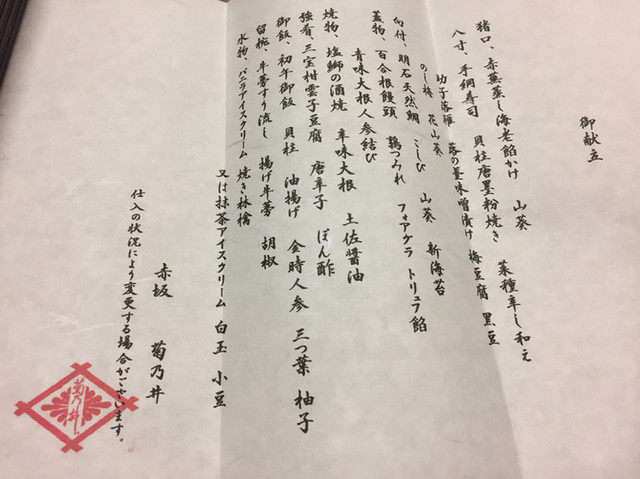 御献立
猪口、赤蕪蒸し海老餡かけ 山葵
八寸、手綱寿司 貝柱唐墨粉焼き 菜種辛し和え
幼子落雁 蕗の薹味噌漬け 梅豆腐 黒豆
のし梅 花山葵
向付、明石天然鯛 こしび 山葵 新海苔
蓋物、百合根饅頭 鶉つみれ フォアグラ トリュフ餡
青味大根人参結び
焼物、塩鰤の酒焼 辛味大根 土佐醤油
強肴、三宝柑雲子豆腐 唐辛子 ぽん酢
御飯、初午御飯 貝柱 油揚げ 金時人参 三つ葉 柚子
留椀、牛蒡すり流し 揚げ牛蒡 胡椒
水物、バニラアイスクリーム 焼き林檎
又は抹茶アイスクリーム 白玉 小豆
赤坂 菊乃井
仕入の状況により変更する場合がございます。
菊乃井